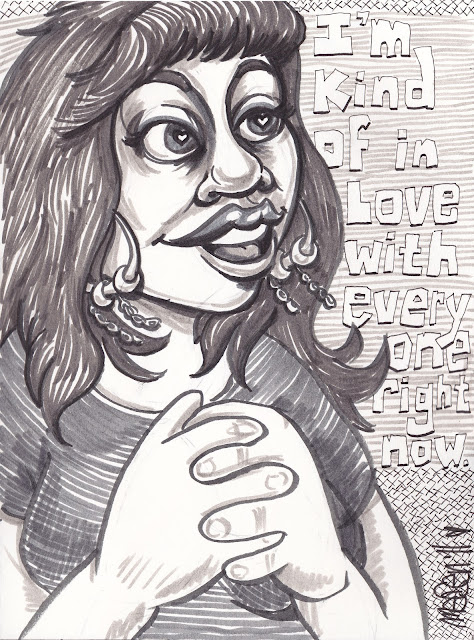 I'm
Kind
OF in
LOVE
with
every
one
right
now.